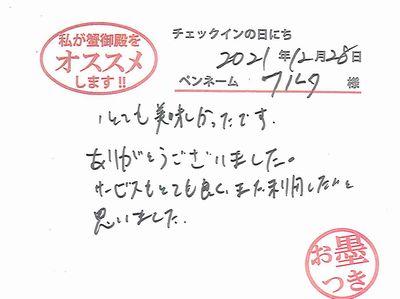 私が蟹御殿を
オススメ
します!!
チェックインの日にち
2021年12月28日
ペンネーム 様
とても美味しかったです.
ありがとうございました。
サービスもとても良く、また利用したいと
思いました.
お墨
つき